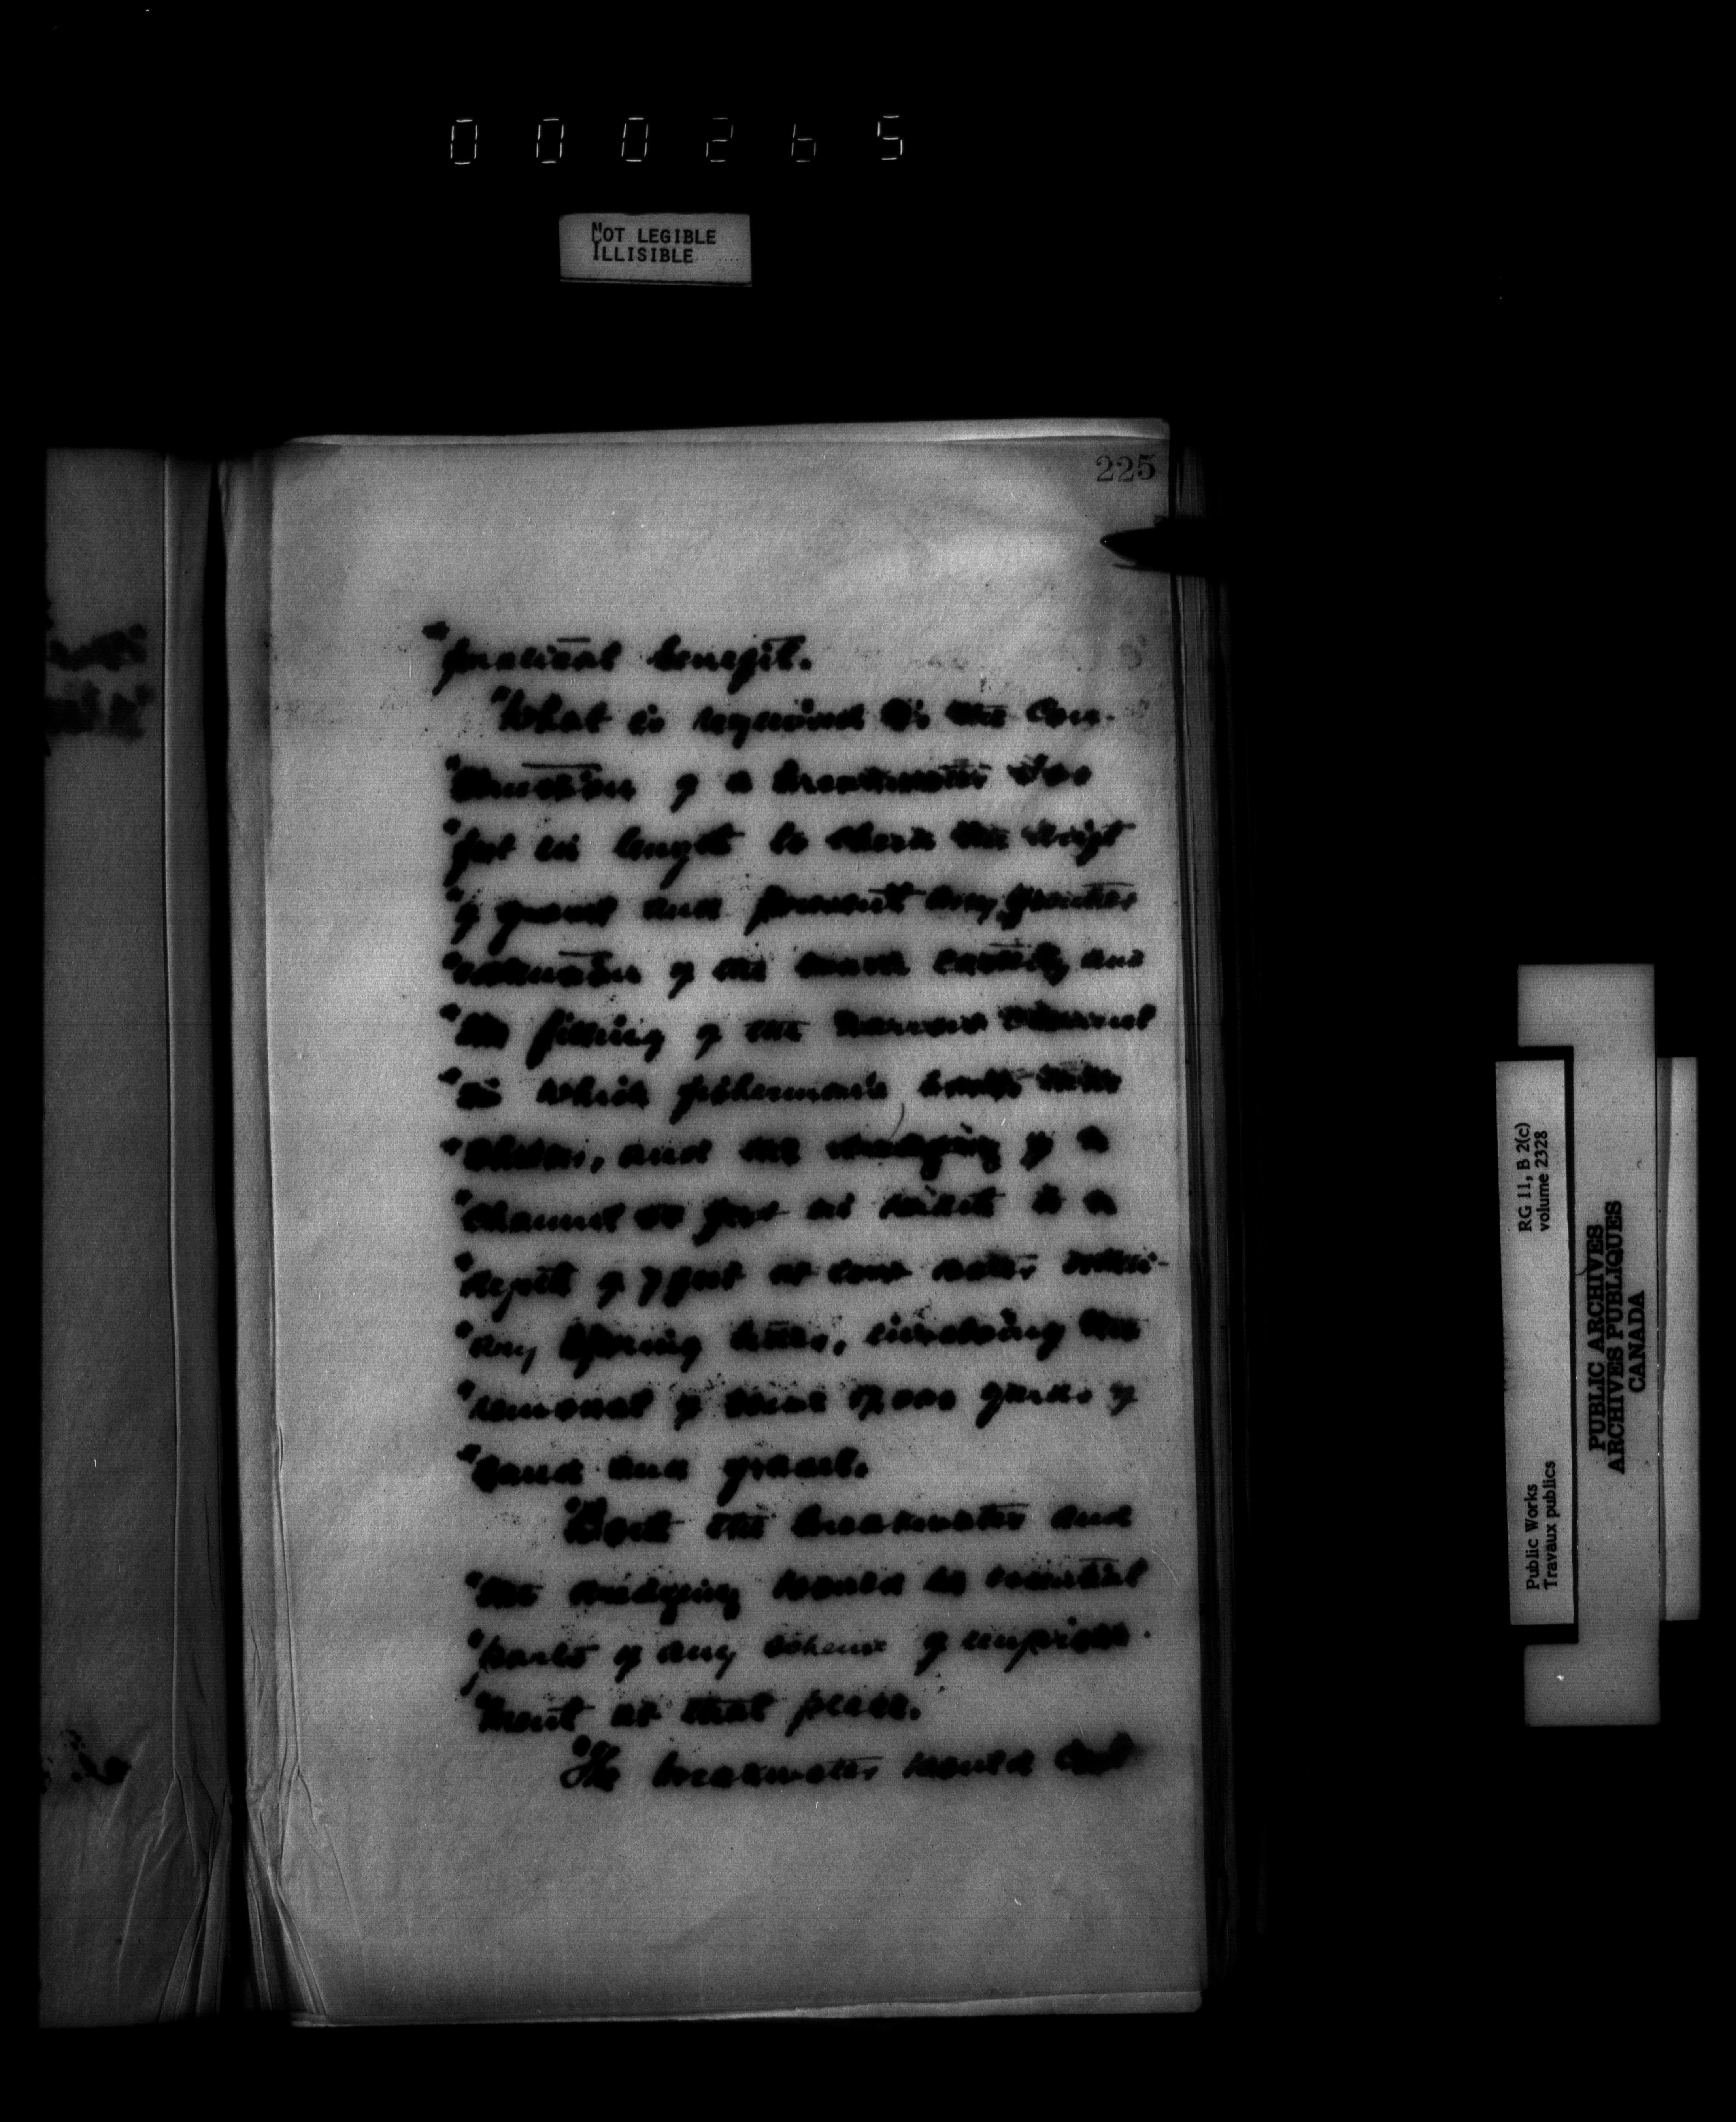 000265
NOT LEGIBLE
ILLISIBLE
225
"practical benefit.
"What is required is the con-
"struction of a breakwater
"feet in length to check the drift
"of gravel and prevent any further
"extension of the beach and
"the filling of the narrow channel
"in which fishermen's boats
"shelter, and the dredging of a
"channel 50 feet in width to a
"depth of 7 feet at low water ordin-
"ary spring tides, involving the
"removal of some 17,000 yards of
"sand and gravel.
"Both the breakwater and
"the dredging would be essential
"parts of any scheme of improve-
"ment at that place.
"The breakwater would cost
RG 11, B 2(c)
volume 2328
Public Works
Travaux publics
PUBLIC ARCHIVES
ARCHIVES PUBLIQUES
CANADA